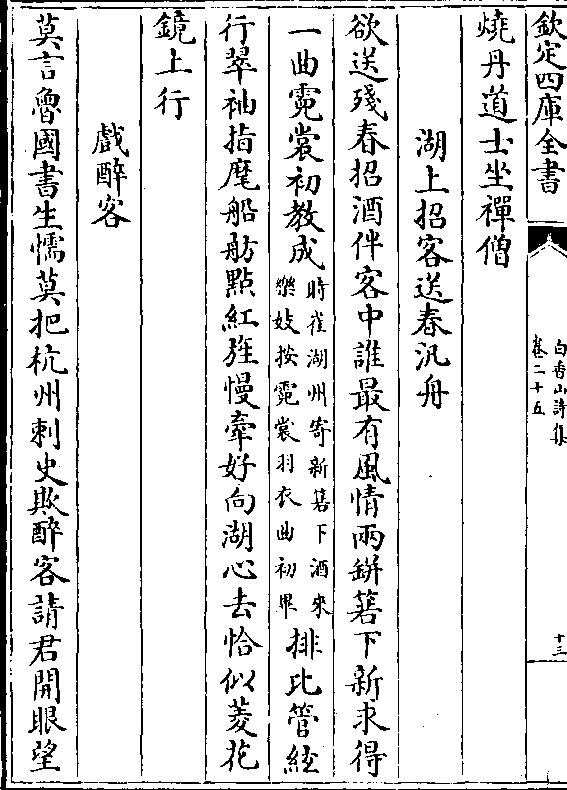 欽定四庫全書
白香山詩集
卷二十五
十三
燒丹道士坐禪僧
湖上招客送春汎舟
欲送殘春招酒伴客中誰最有風情兩缾箬下新求得
一曲霓裳初教成
時崔湖州寄新箬下酒來
樂妓按霓裳羽衣曲初畢
排比管絃
行翠袖指麾船舫點紅旌慢牽好向湖心去恰似菱花
鏡上行
戲醉客
莫言魯國書生懦莫把杭州刺史欺醉客請君開眼望